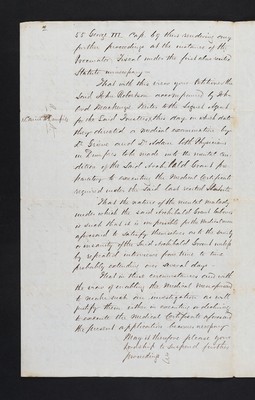 55 Geo III Cap. by thus rendering any
further proceedings at the instance of the
Procurator Fiscal under the first above recited
Statute unnecessary
That with this view your Petitioner the
said John Robertson accompanied by John
Writer to the Signet Agent
for the said Trustees, this day on which date
they directed a medical examination by
Dr Grieve and Dr Adam both Physicians
in Dumfries to be made into the mental con
dition of the said Archibald Grant pre
paratory to executing the Medical Certificate
required under the said last recited Statute
That the nature of the mental malady
under which the said Archibald Grant labours
is such that it is impossible for the Medical men
aforesaid to satisfy themselves as to the sanity
or insanity of the said Archibald Grant unless
by repeated interviews from time to time
probably extending over several days
That in these circumstances and with
the view of enabling the Medical men aforesaid
to make such an investigation as will
justify them either in executing or declining
to execute the Medical Certificate aforesaid
the present application becomes necessary
May it therefore please your
Lordship to suspend further
proceeding